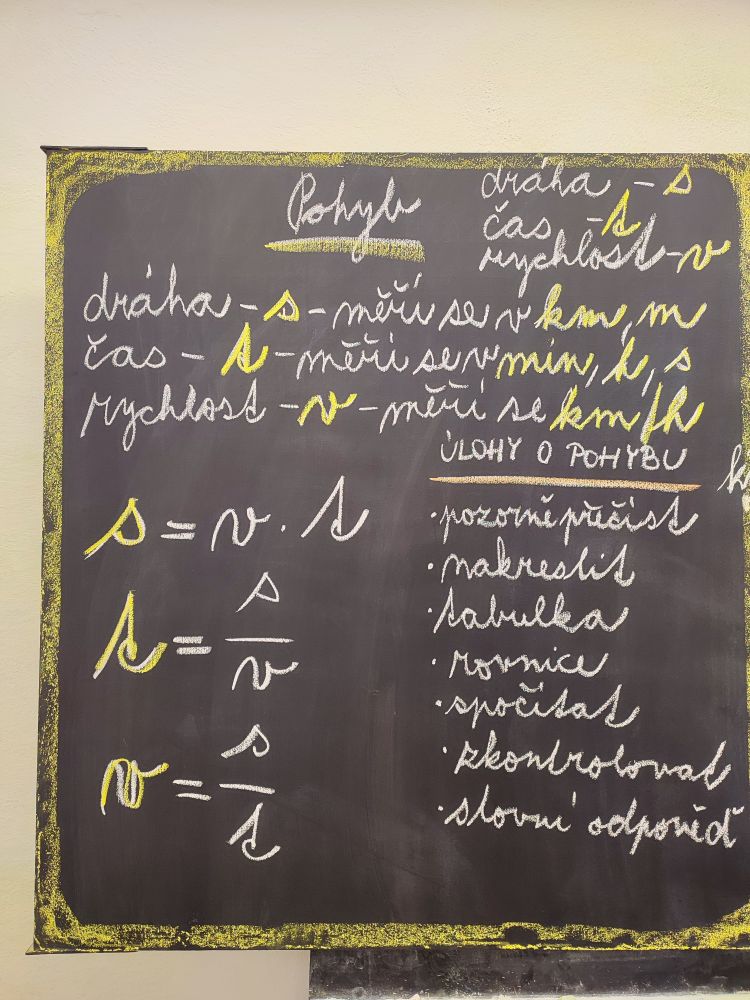 Pohyb
dráha - s
čas - t
rychlost - v
dráha - s - měří se v km, m
čas - t - měří se v min, h, s
rychlost - v - měří se km/h
ÚLOHY O POHYBU
s = v · t
t = s/v
v = s/t
· pozorně přečíst
· nakreslit
· tabulka
· rovnice
· spočítat
· zkontrolovat
· slovní odpověď